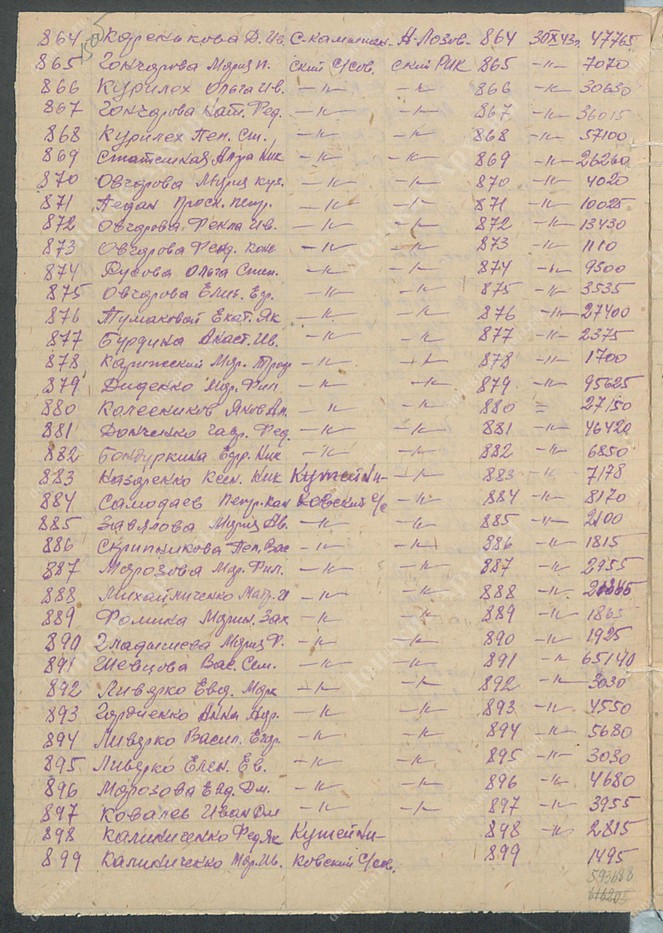 864 Каренькова Д. Ив. С-Камышин- Н-Лозов- 864 30 XI 43г. 47765
865 Гончарова Мария И. ский С/сов. ский РИК 865 -"- 7070
866 Курилех Ольга Ив. -"- -"- 866 -"- 30630
867 Гончарова Нат. Фед. -"- -"- 867 -"- 36015
868 Курилех Пел. Ст. -"- -"- 868 -"- 57100
869 Ник -"- -"- 869 -"- 26260
870 Овчарова Мария Куз. -"- -"- 870 -"- 4020
871 Педан Проск. Петр. -"- -"- 871 -"- 10025
872 Овчарова Фекла Ив. -"- -"- 872 -"- 13430
873 Овчарова Фенд. Кон -"- -"- 873 -"- 1110
874 Ольга Степ. -"- -"- 874 -"- 9500
875 Овчарова Елиз. Егр. -"- -"- 875 -"- 3535
876 Тумаковой Екат. Як -"- -"- 876 -"- 27400
877 Бурдина Анаст. Ив. -"- -"- 877 -"- 2375
878 Мар. -"- -"- 878 -"- 1700
879 Диденко Мар. Фил. -"- -"- 879 -"- 95625
880 Колесников Яков Ан. -"- -"- 880 = 27150
881 Донченко Гавр. Фед. -"- -"- 881 -"- 46420
882 Бондуркина Егр. Ник -"- -"- 882 -"- 6850
883 Назаренко Ксен. Ник Кутейни- -"- 883 -"- 7178
884 Самодаев Петр. Кан ковский с/с -"- 884 -"- 8170
885 Завялова Мария Ав. -"- -"- 885 -"- 2100
886 Скрипникова Пел. Вас -"- -"- 886 -"- 1815
887 Морозова Мар. Фил. -"- -"- 887 -"- 2955
888 Михайличенко -"- -"- 888 -"-
889 Фомина Марин. Зах -"- -"- 889 -"- 1865
890 Гладышева Мария Ф. -"- -"- 890 -"- 1925
891 Шевцова Вас. Сем. -"- -"- 891 -"- 65140
892 Ливярко Евд. Марк -"- -"- 892 -"- 3030
893 Гордченко Анна Андр. -"- -"- 893 -"- 4550
894 Ливярко Васил. Егор. -"- -"- 894 -"- 5680
895 Ливерко Елен. Ев. -"- -"- 895 -"- 3030
896 Морозова Евд. Дм. -"- -"- 896 -"- 4680
897 Ковалев Иван Дм -"- -"- 897 -"- 3955
898 Калиниченко Фед. Як Кутейни- 898 -"- 2815
899 Калиниченко Мар. Ив. ковский С/сов. 899 1495
593688
616205